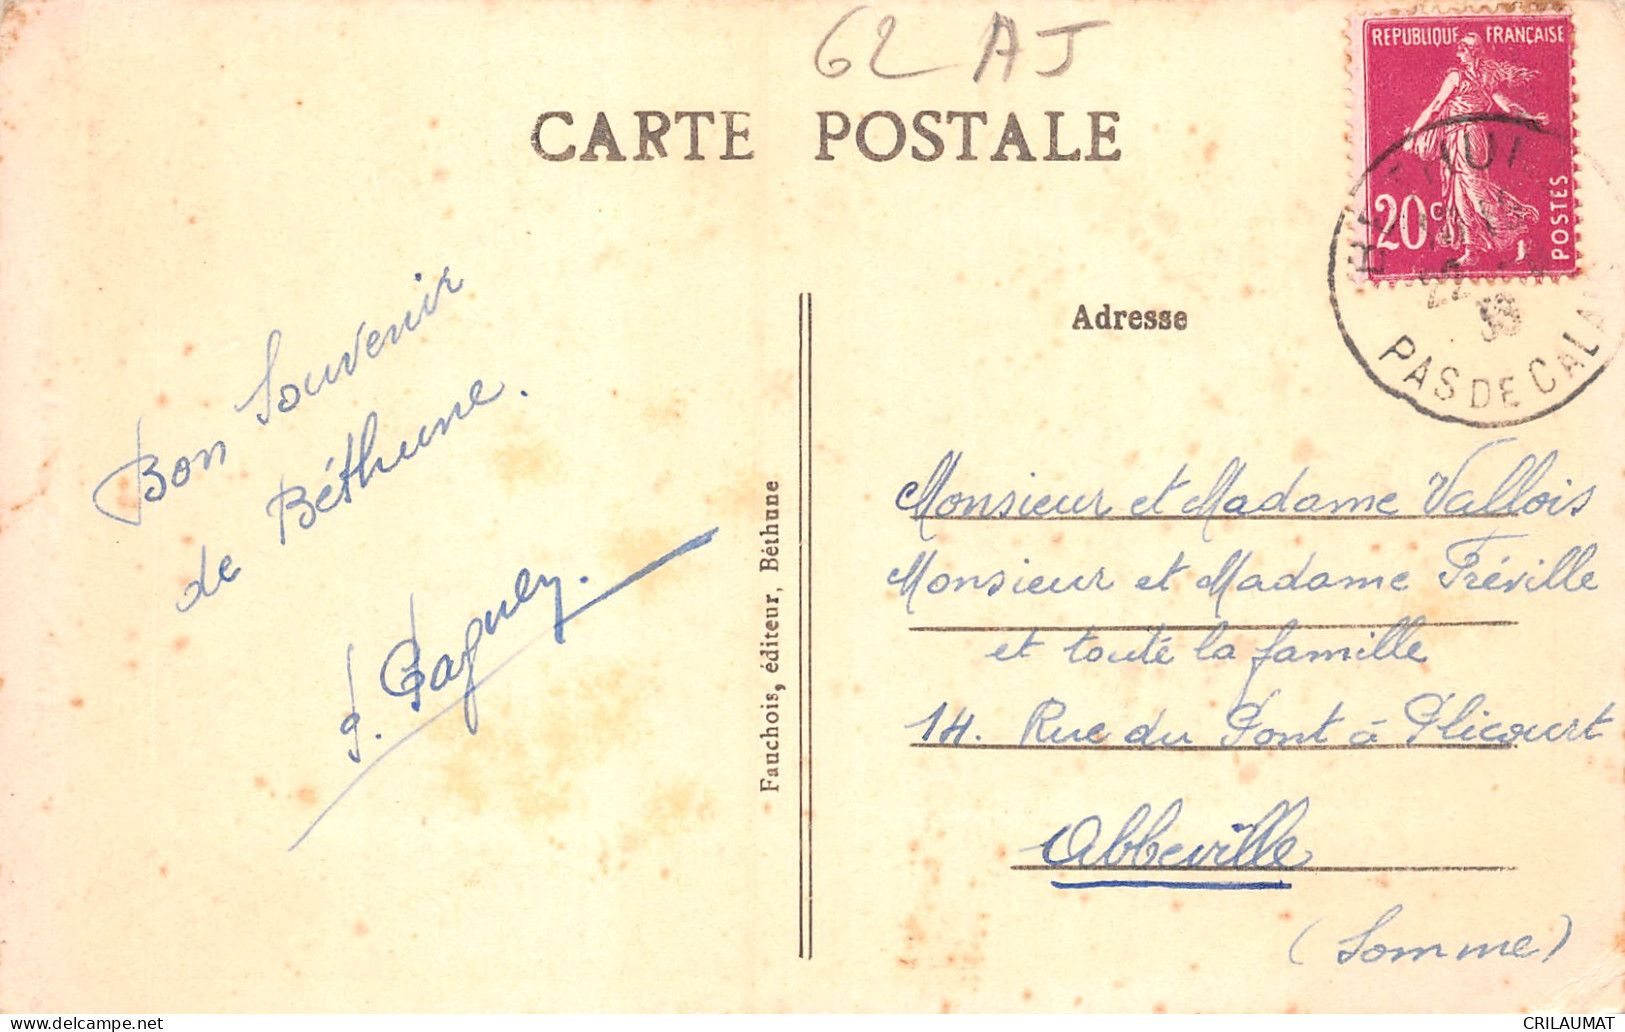 62 AJ
CARTE POSTALE
REPUBLIQUE FRANÇAISE
20c
POSTES
PAS DE CALAIS
Adresse
Bon Souvenir
de Béthune.
Fauchois, éditeur, Béthune
Monsieur et Madame Vallois
Monsieur et Madame Fréville
et toute la famille
14. Rue du Pont à Plicourt
Abbeville
(Somme)
CRILAUMAT